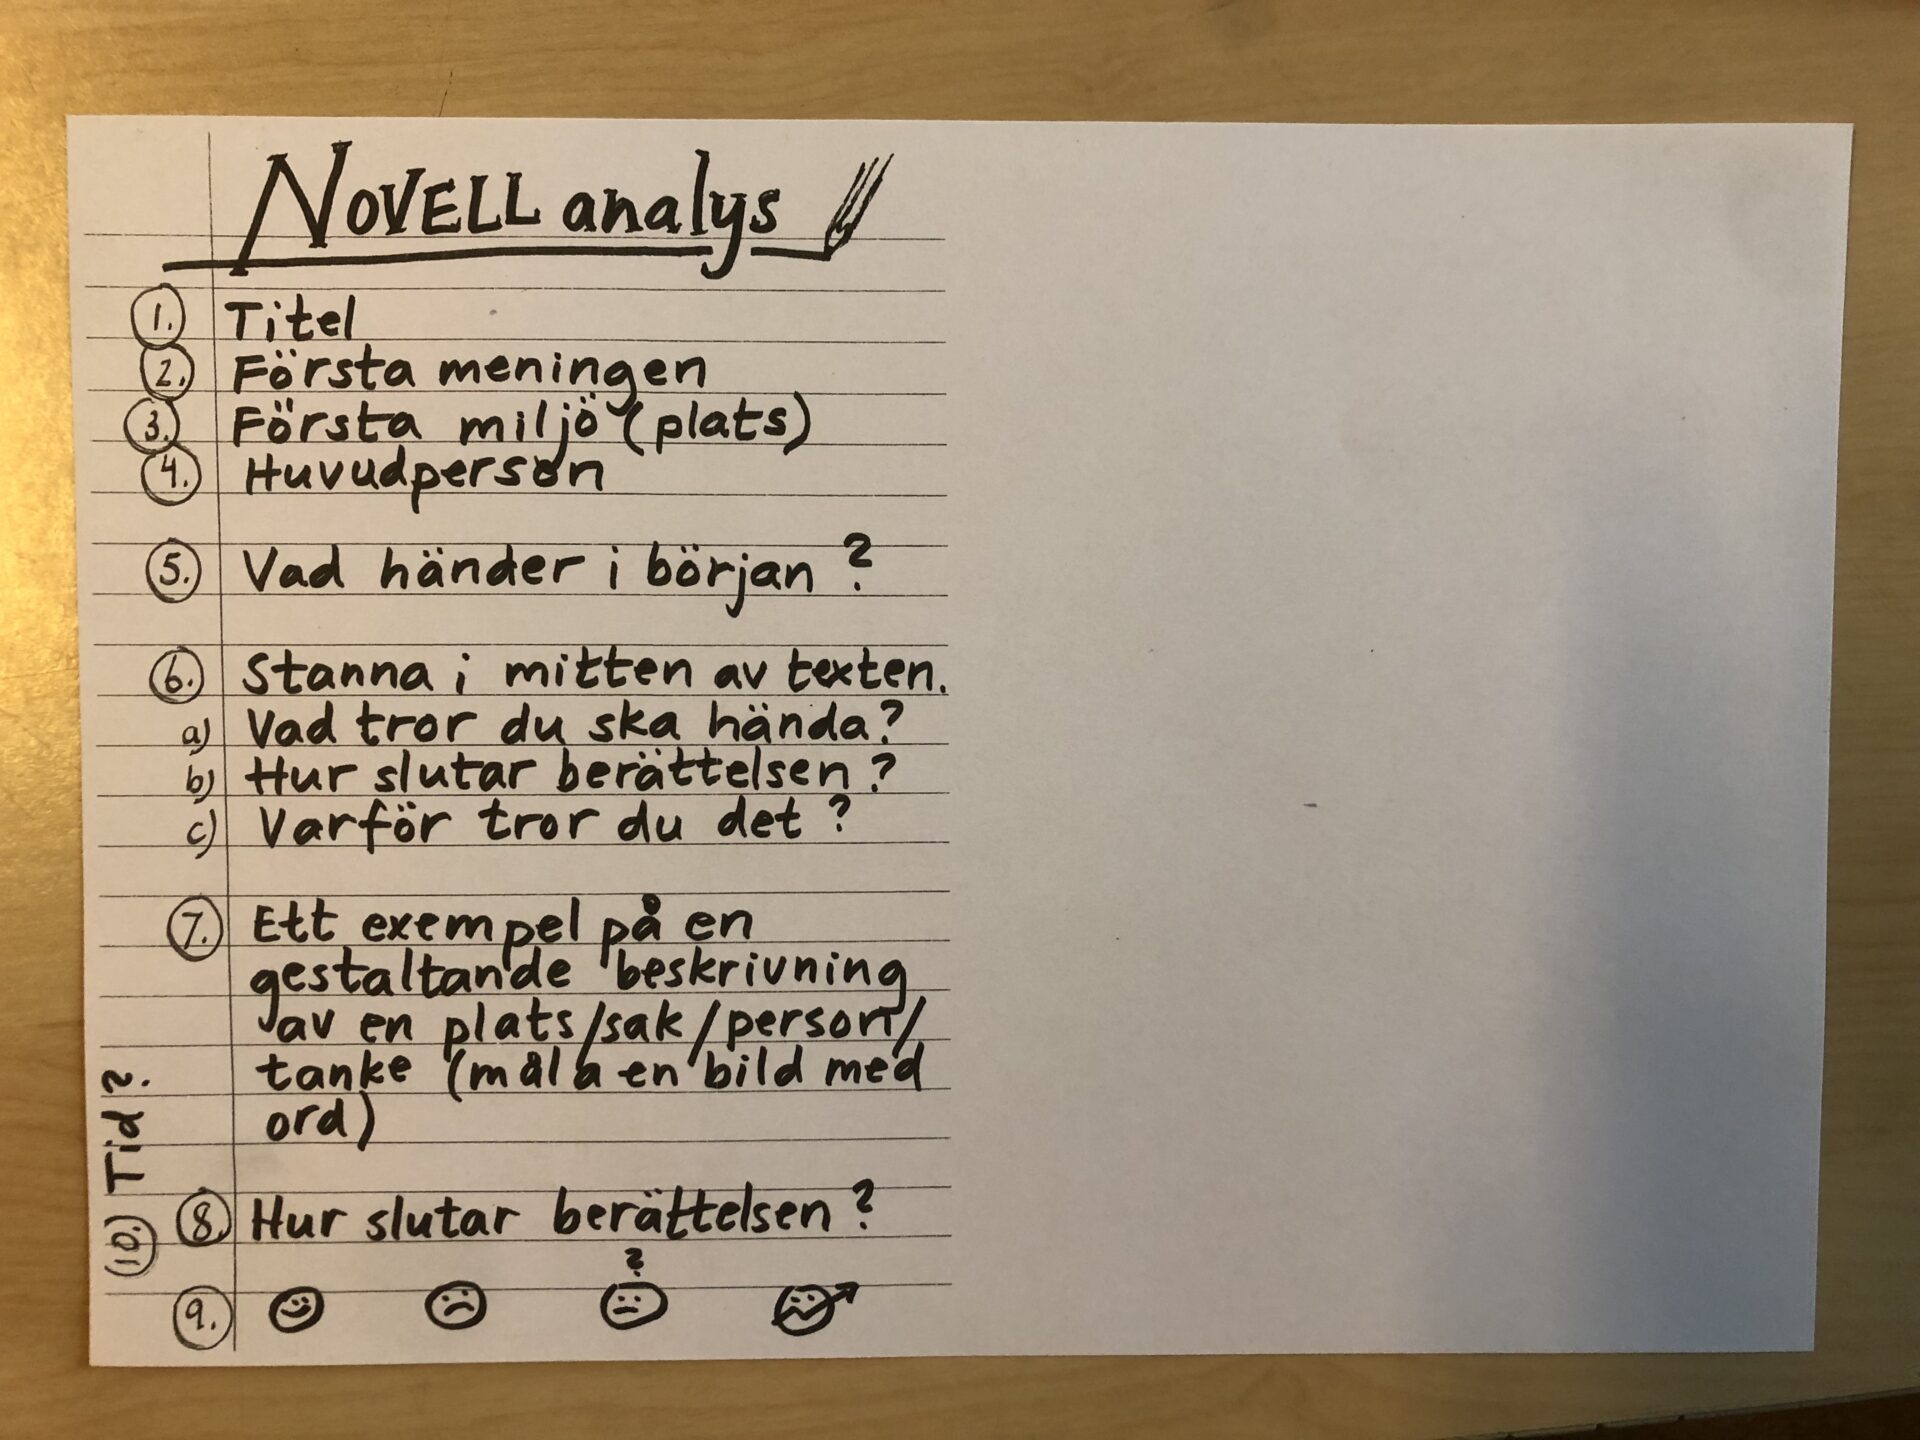 NOVELL analys
1. Titel
2. Första meningen
3. Första miljö (plats)
4. Huvudperson
5. Vad händer i början?
6. Stanna i mitten av texten.
a) Vad tror du ska hända?
b) Hur slutar berättelsen?
c) Varför tror du det?
7. Ett exempel på en
gestaltande beskrivning
av en plats/sak/person/
tanke (måla en bild med
ord)
8. Hur slutar berättelsen?
?
9.
10. Tid?